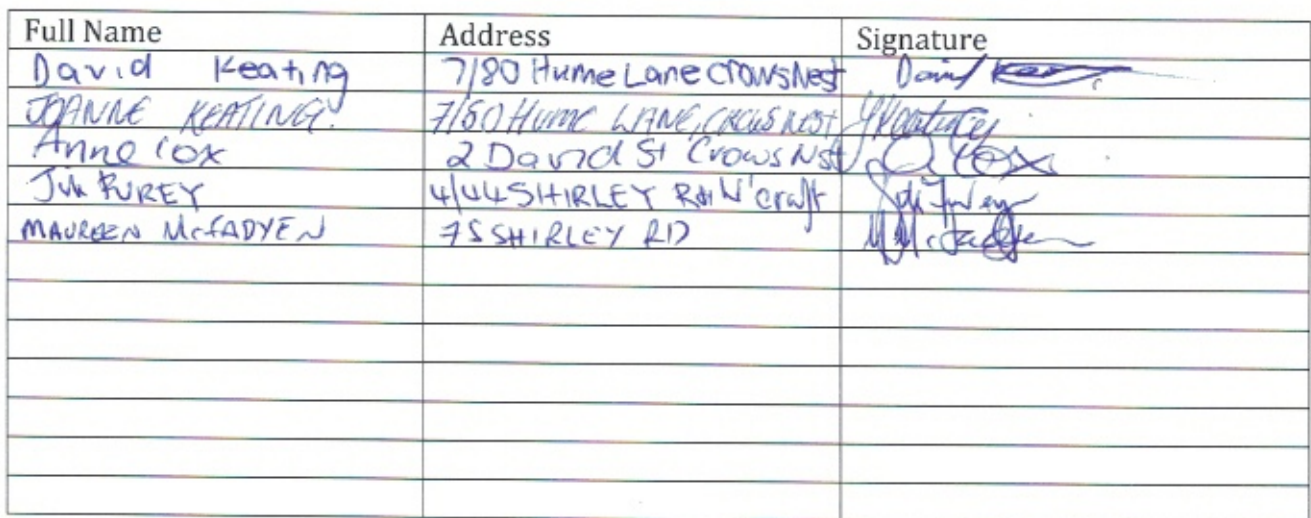 Full Name Address Signature
David Keating 7/80 Hume Lane Crows Nest David
JOANNE KEATING. 7/80 Hume LANE, CROWS NEST JKeating
Anne Cox 2 David St Crows Nst A Cox
FUREY 4/44 SHIRLEY Rd W'craft Furey
MAUREEN McFADYEN 75 SHIRLEY RD M McFadyen